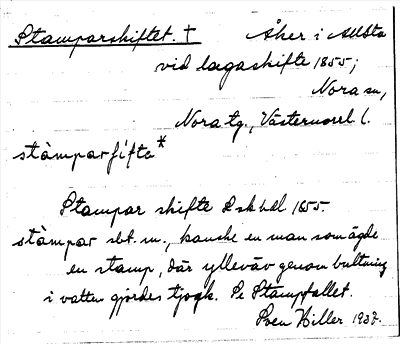 Stamparskiftet. † Åker i Allsta
vid lagaskifte 1855;
Nora sn,
Nora tg., Västernorrl l.
stàmparfifte*
Stampar skifte Lskhdl. 1855.
stàmpar sbt. m., kanske en man som ägde
en stamp, där ylleväv genom bultning
i vatten gjordes tjock. Se Stampfallet.
Sven Hiller 1937.